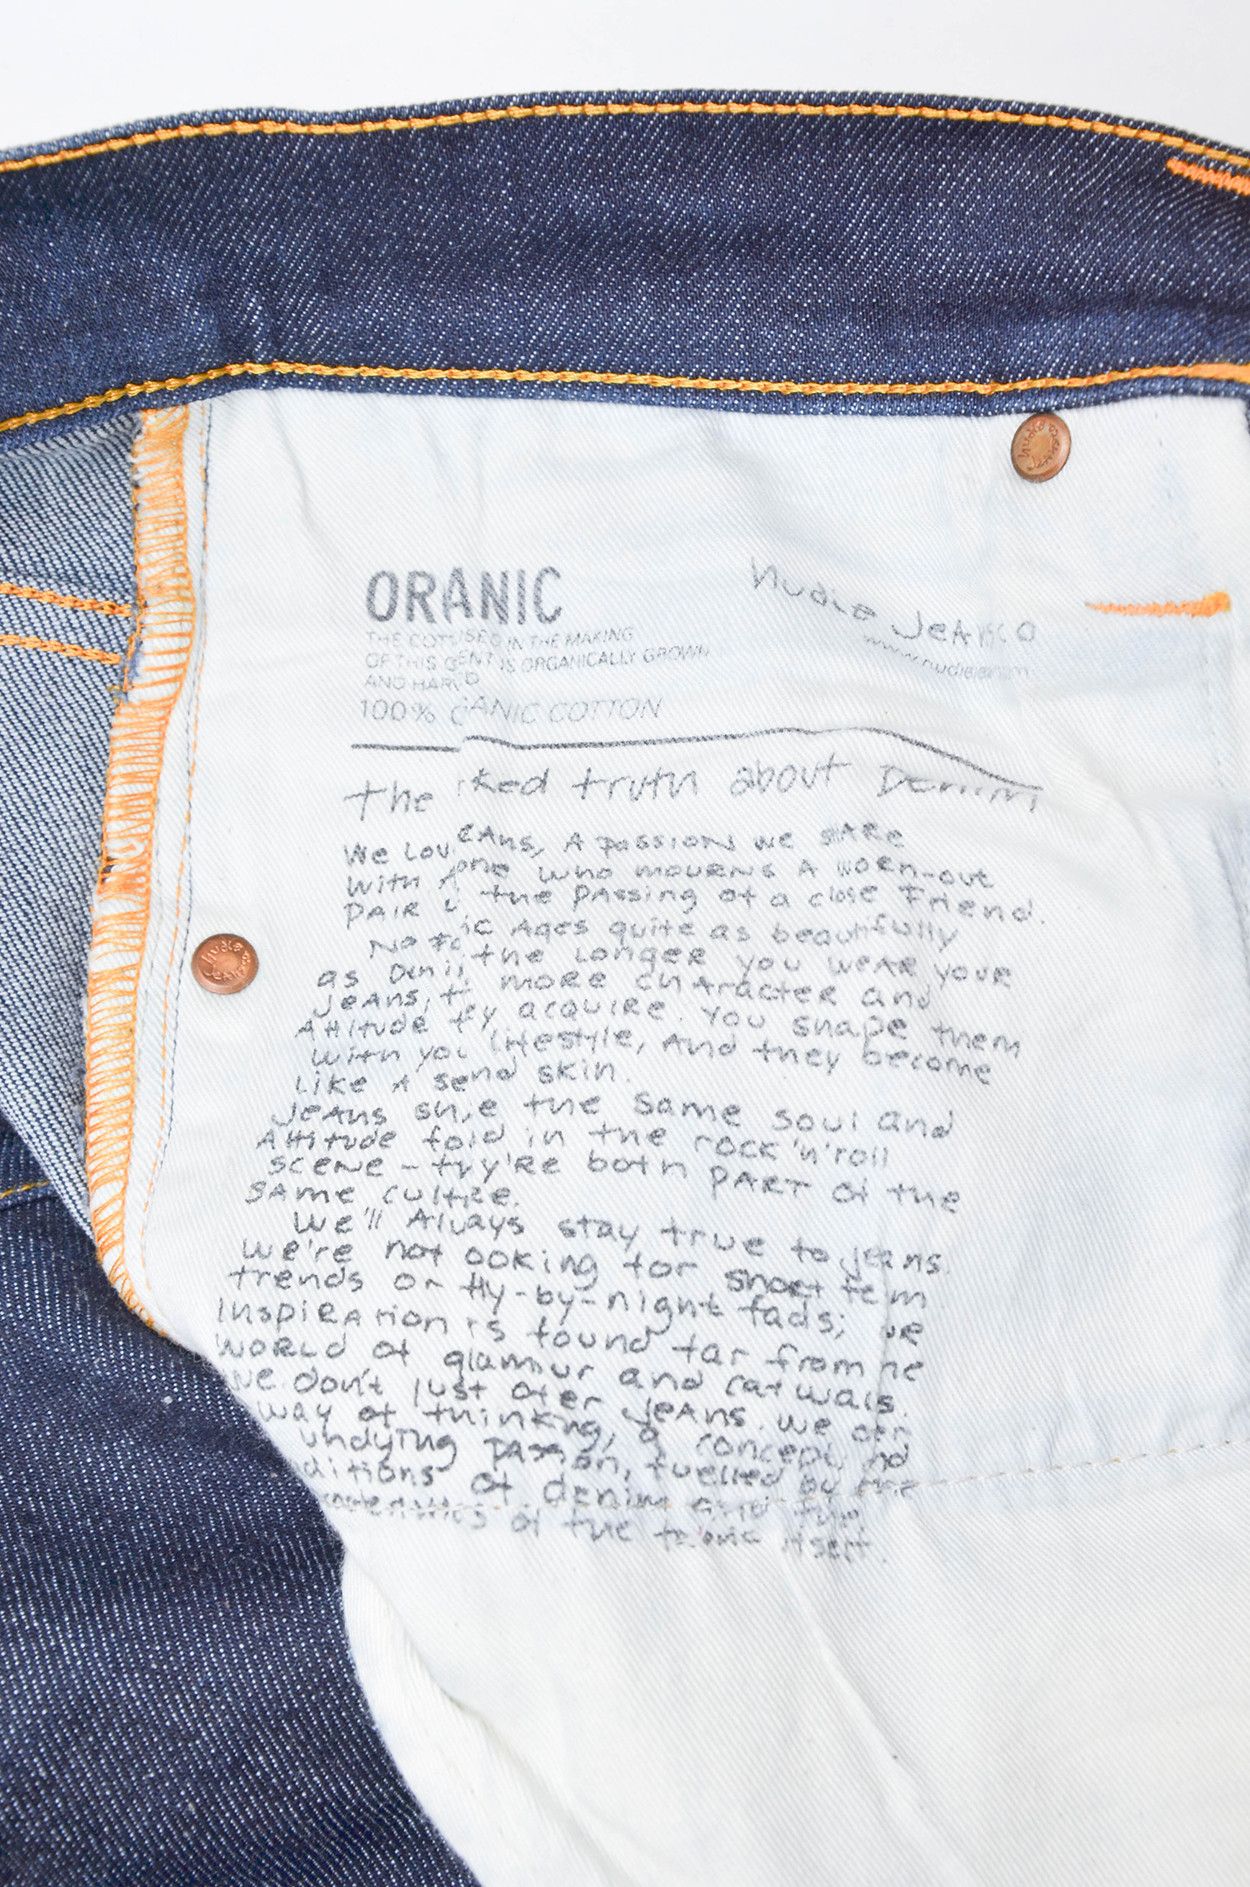 ORANIC
nudie JeANS CO
THE COTUSED IN THE MAKING
OF THIS GENT IS ORGANICALLY GROWN
AND HARV D
100% GANIC COTTON
The ked truth about Denim
We Lov eAns, A passion we sARe
with one who mourns A worn-out
PAIR the passing of a close Friend.
No ic Ages quite as beautifully
as Deni the Longer you weAR your
JeAns, t more character and
Attitude ty acquire. You shape them
with you lifestyle, And they become
Like A send skin.
JeAns she the same soul and
Attitude fold in the rock 'n' roll
scene - thy'Re both PART of the
sAme cultre.
We'll Always stay true to jeans.
we're not ooking for short tem
trends or fly-by-night fads; we
InspiRAtion is found far from he
woRLd of glamur and catwals.
we don't just ofer JeAns. we
way of thinking, a concept nd
undying passon, fuelled by the
ditions of denim and the
of the fabric itself.